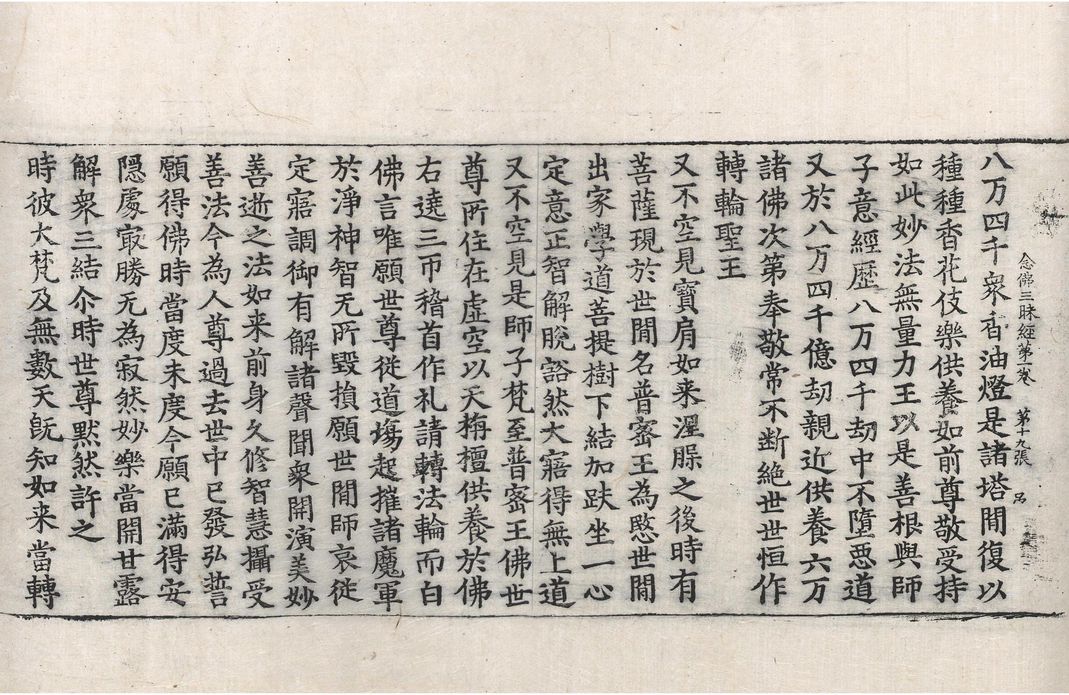 念佛三昧經第卷 第十九張 呂
八万四千衆香油燈是諸塔閒復以
種種香花伎樂供養如前尊敬受持
如此妙法無量力王以是善根與師
子意經歷八万四千劫中不墮惡道
又於八万四千億劫親近供養六万
諸佛次第奉敬常不断絶世世恒作
轉輪聖王
又不空見寶肩如来涅槃之後時有
菩薩現於世閒名普密王為愍世閒
出家學道菩提樹下結加趺坐一心
定意正智解脫豁然大寤得無上道
又不空見是師子梵至普密王佛世
尊所住在虚空以天栴檀供養於佛
右遶三帀稽首作礼請轉法輪而白
佛言唯願世尊從道塲起摧諸魔軍
於淨神智无所毀損願世閒師哀從
定寤調御有解諸聲聞衆開演美妙
善逝之法如来前身久修智慧攝受
善法今為人尊過去世中已發弘誓
願得佛時當度未度今願已滿得安
隱處㝡勝无為寂然妙樂當開甘露
解衆三結尒時世尊黙然許之
時彼大梵及無數天旣知如来當轉